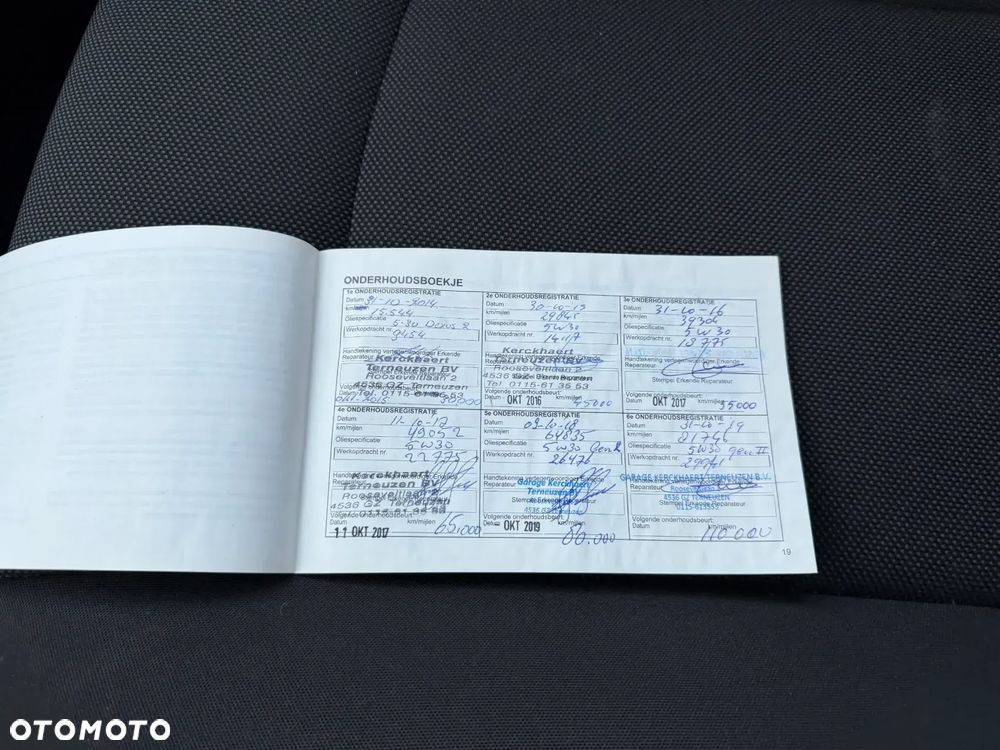 ONDERHOUDSBOEKJE
1e ONDERHOUDSREGISTRATIE
Datum 31-10-2014
km/mijlen 15.544
Oliespecificatie 5-30
Werkopdracht nr. 9454
Handtekening vertegenwoordiger Erkende
Reparateur:
Kerckhaert
Terneuzen BV
Rooseveltlaan 2
4536 GZ Terneuzen
Tel. 0115-61 35 53
Volgende onderhoudsbeurt:
Datum okt-2015 30000
2e ONDERHOUDSREGISTRATIE
Datum 30-10-15
km/mijlen 29845
Oliespecificatie 5W30
Werkopdracht nr. 14117
Kerckhaert
Terneuzen BV
Rooseveltlaan 2
4536 GZ Terneuzen
Tel. 0115-61 35 53
Volgende onderhoudsbeurt:
Datum OKT 2016 km/mijlen 45000
3e ONDERHOUDSREGISTRATIE
Datum 31-10-16
km/mijlen 39304
Oliespecificatie 5W30
Werkopdracht nr. 18775
Handtekening vertegenwoordiger Erkende
Reparateur:
Stempel Erkende Reparateur
Volgende onderhoudsbeurt:
Datum OKT 2017 km/mijlen 55000
4e ONDERHOUDSREGISTRATIE
Datum 11-10-17
km/mijlen 49052
Oliespecificatie 5W30
Werkopdracht nr. 22775
Kerckhaert
Terneuzen BV
Rooseveltlaan 2
4536 GZ Terneuzen
0115-61 35 53
Volgende onderhoudsbeurt:
Datum km/mijlen
11 OKT 2017 65.000
5e ONDERHOUDSREGISTRATIE
Datum 09-10-18
km/mijlen 64835
Oliespecificatie 5W30 Gen2
Werkopdracht nr. 26476
Handtekening vertegenwoordiger Erkende
Reparateur:
Garage Kerckhaert
Terneuzen BV
Stempel Erkende Reparateur
Volgende onderhoudsbeurt:
Datum - OKT 2019 km/mijlen 80.000
6e ONDERHOUDSREGISTRATIE
Datum 31-10-19
km/mijlen 81746
Oliespecificatie 5W30 gen II
Werkopdracht nr.
GARAGE KERCKHAERT TERNEUZEN B.V.
Reparateur:
4536 GZ TERNEUZEN
Volgende onderhoudsbeurt:
Datum km/mijlen 110000
19
OTOMOTO